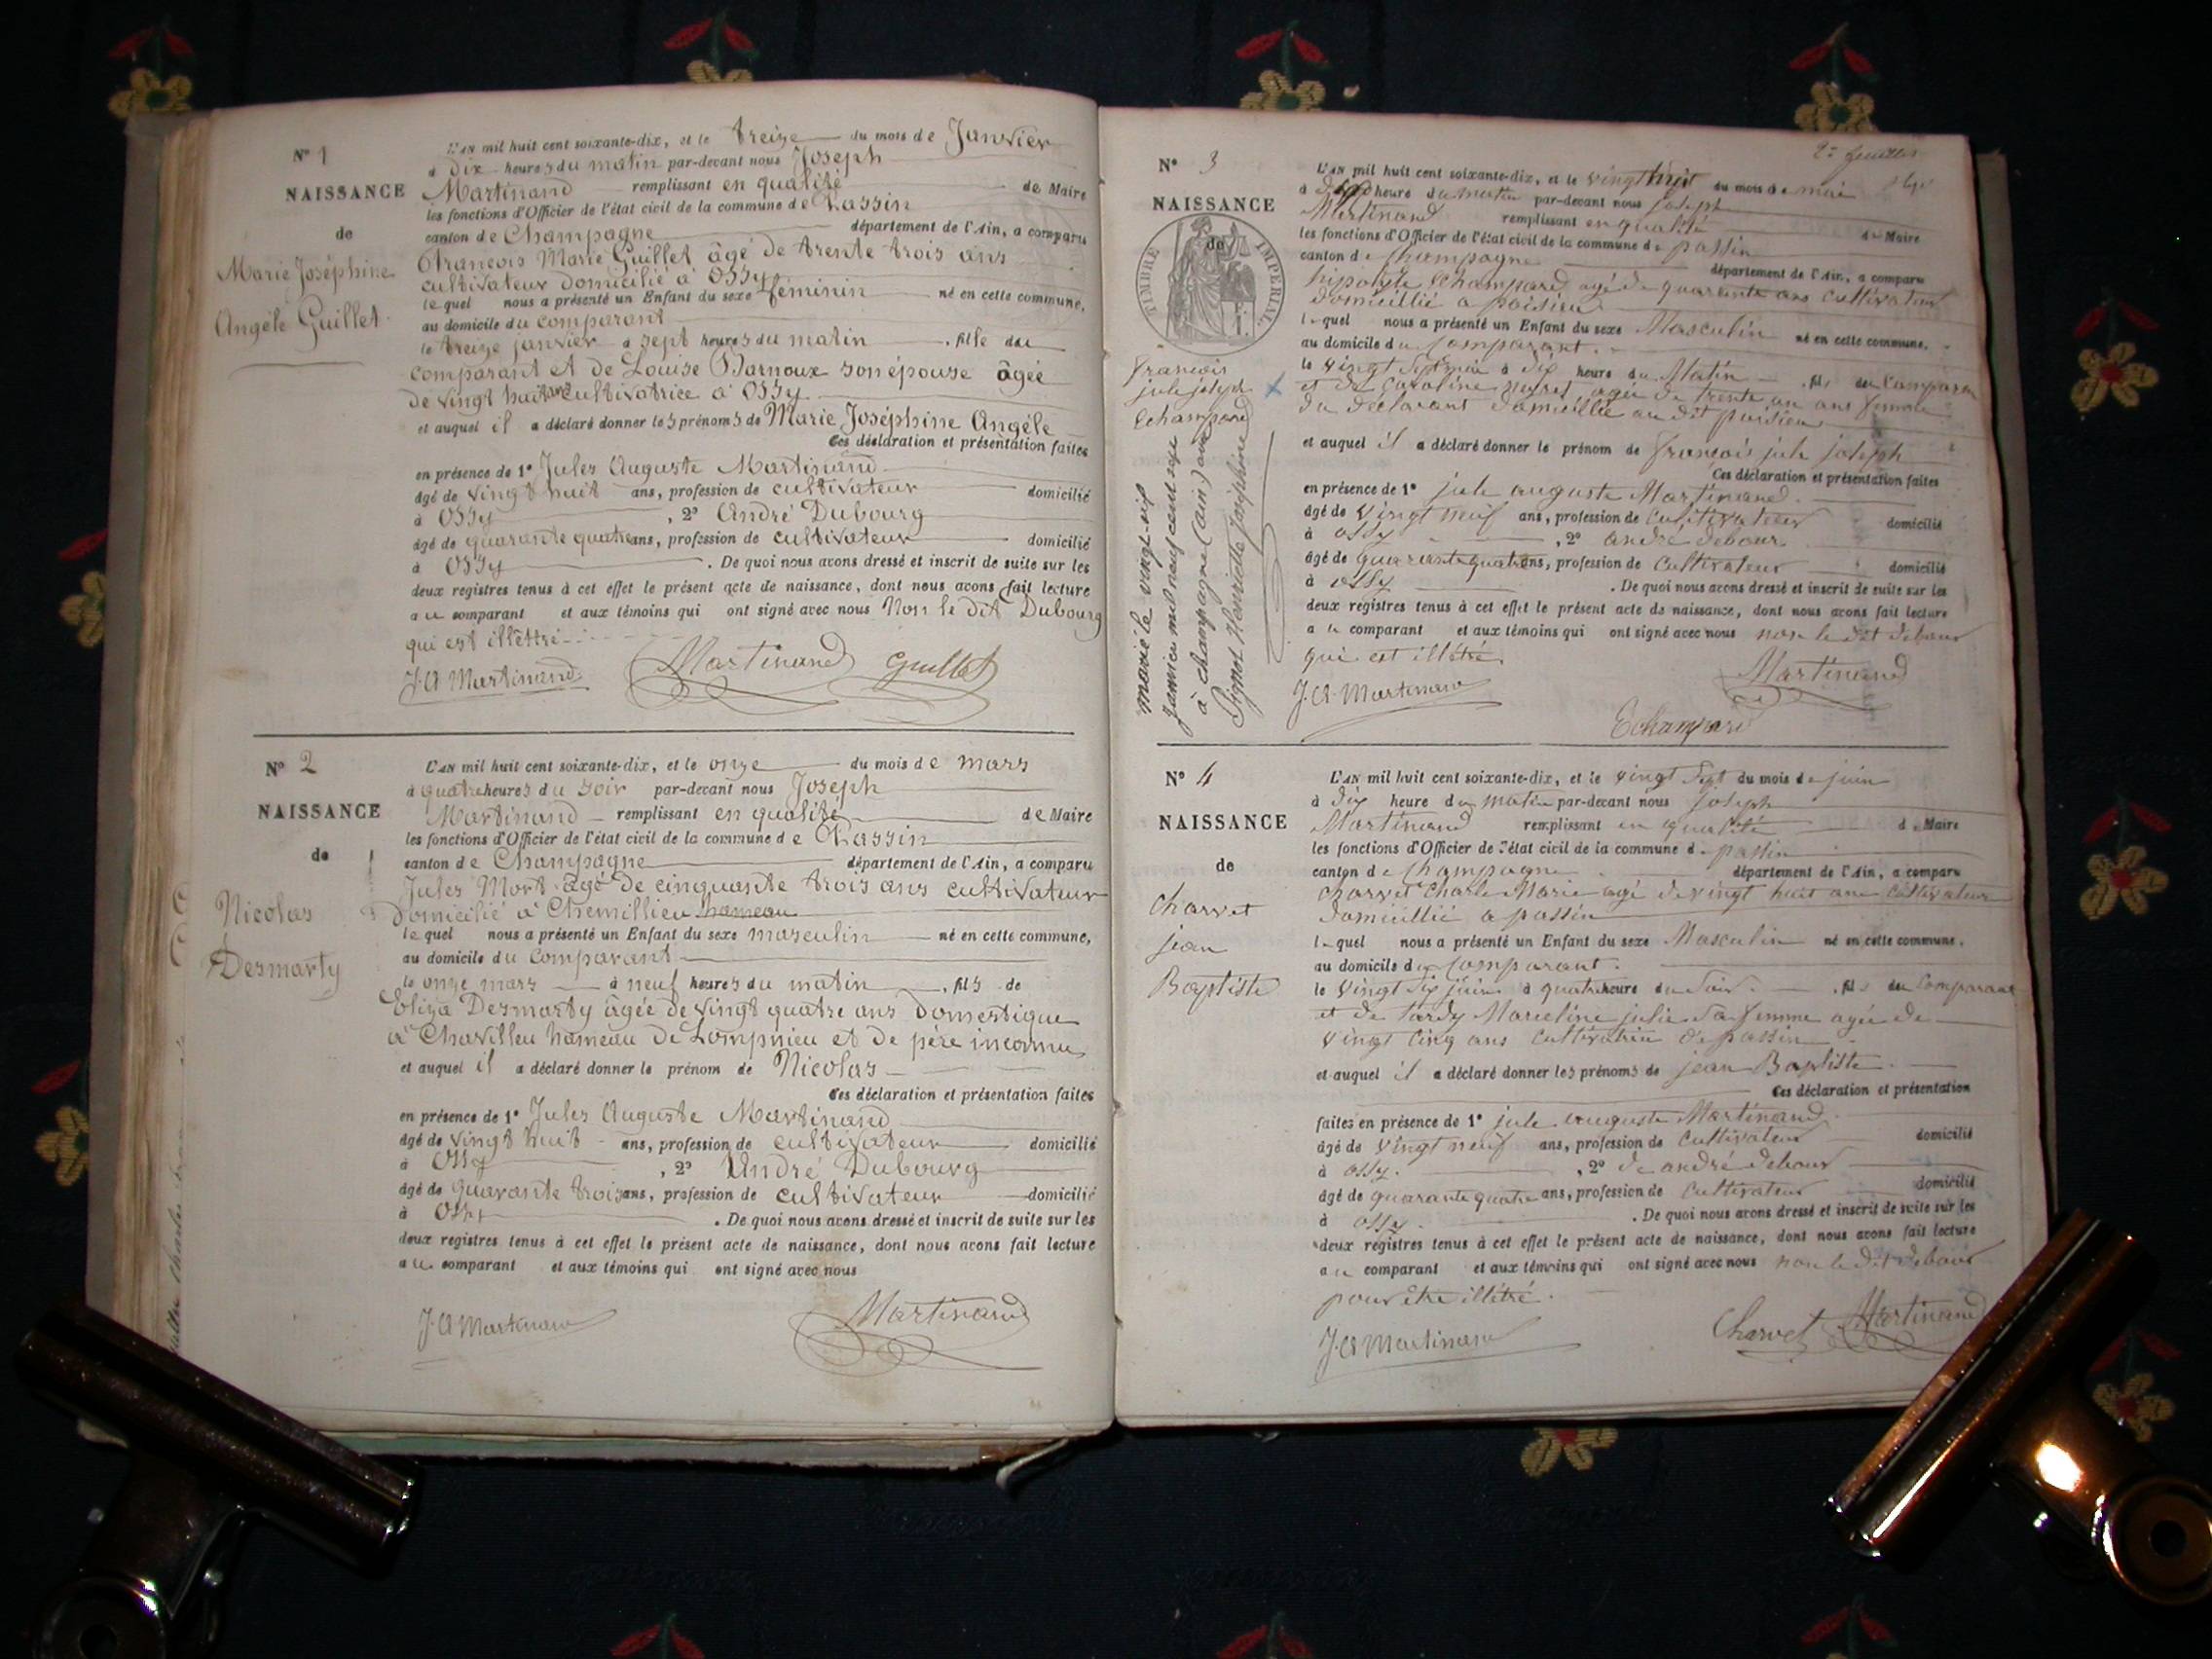 N° 1
NAISSANCE
de
Marie Joséphine
Angèle Guillet
L'AN mil huit cent soixante-dix, et le treize du mois de Janvier
à dix heures du matin par-devant nous Joseph
Martinand remplissant en qualité de Maire
les fonctions d'Officier de l'état civil de la commune de Passin
canton de Champagne département de l'Ain, a comparu
François Marie Guillet âgé de trente trois ans
cultivateur domicilié à Ossy
lequel nous a présenté un Enfant du sexe féminin né en cette commune,
au domicile du comparant
le treize janvier à sept heures du matin, fille du
comparant et de Louise Barnoux son épouse âgée
de vingt huit ans cultivatrice à Ossy
et auquel il a déclaré donner les prénoms de Marie Joséphine Angèle
Ces déclaration et présentation faites
en présence de 1° Jules Auguste Martinand
âgé de vingt huit ans, profession de cultivateur domicilié
à Ossy, 2° André Dubourg
âgé de quarante quatre ans, profession de cultivateur domicilié
à Ossy. De quoi nous avons dressé et inscrit de suite sur les
deux registres tenus à cet effet le présent acte de naissance, dont nous avons fait lecture
au comparant et aux témoins qui ont signé avec nous Non le dit Dubourg
qui est illettré
J. A Martinand Martinand Guillet
N° 2
NAISSANCE
de
Nicolas
Desmarty
L'AN mil huit cent soixante-dix, et le onze du mois de mars
à quatre heures du soir par-devant nous Joseph
Martinand remplissant en qualité de Maire
les fonctions d'Officier de l'état civil de la commune de Passin
canton de Champagne département de l'Ain, a comparu
Jules Mort âgé de cinquante trois ans cultivateur
domicilié à Chemillieu hameau
lequel nous a présenté un Enfant du sexe masculin né en cette commune,
au domicile du comparant
le onze mars à neuf heures du matin, fils de
Eliza Desmarty âgée de vingt quatre ans domestique
à Chavilleu hameau de Lompnieu et de père inconnu
et auquel il a déclaré donner le prénom de Nicolas
Ces déclaration et présentation faites
en présence de 1° Jules Auguste Martinand
âgé de vingt huit ans, profession de cultivateur domicilié
à Ossy, 2° André Dubourg
âgé de quarante trois ans, profession de cultivateur domicilié
à Ossy. De quoi nous avons dressé et inscrit de suite sur les
deux registres tenus à cet effet le présent acte de naissance, dont nous avons fait lecture
au comparant et aux témoins qui ont signé avec nous
J. A Martinand Martinand
2e feuillet
N° 3
NAISSANCE
de
TIMBRE IMPERIAL
françois
jule joseph
Echampard
marié le vingt-six
janvier mil neuf cent
à champagne (ain) avec
Henriette Joséphine
L'AN mil huit cent soixante-dix, et le vingt huit du mois de mai
à heure du matin par-devant nous joseph
Martinand remplissant en qualité de Maire
les fonctions d'Officier de l'état civil de la commune de passin
canton de Champagne département de l'Ain, a comparu
hipolyte Echampard agé de quarante ans cultivateur
domicillié a poisieu
lequel nous a présenté un Enfant du sexe Masculin né en cette commune,
au domicile du comparant.
le vingt sept mai à dix heure du Matin, fils du Comparan
et de Caroline agée de trente un ans femme
du déclarant domicillie au dit poisieu
et auquel il a déclaré donner le prénom de françois jule joseph
Ces déclaration et présentation faites
en présence de 1° jule auguste Martinand.
âgé de vingt neuf ans, profession de cultivateur domicilié
à ossy, 2° andré debour
âgé de quarante quatre ans, profession de cultivateur domicilié
à ossy. De quoi nous avons dressé et inscrit de suite sur les
deux registres tenus à cet effet le présent acte de naissance, dont nous avons fait lecture
au comparant et aux témoins qui ont signé avec nous non le dit debour
qui est illétré.
J. A. Martinand Martinand
Echampard
N° 4
NAISSANCE
de
charvet
jean
Baptiste
L'AN mil huit cent soixante-dix, et le vingt sept du mois de juin
à dix heure du matin par-devant nous joseph
Martinand remplissant en qualité de Maire
les fonctions d'Officier de l'état civil de la commune de passin
canton de Champagne département de l'Ain, a comparu
charvet charle Marie agé de vingt huit ans cultivateur
domicillié a passin
lequel nous a présenté un Enfant du sexe Masculin né en cette commune,
au domicile du comparant.
le vingt six juin à quatre heure du soir, fils du comparant
et de tardy Marceline julie sa femme agée de
vingt cinq ans cultivatrice a passin
et auquel il a déclaré donner les prénoms de jean Baptiste
Ces déclaration et présentation
faites en présence de 1° jule auguste Martinand.
âgé de vingt neuf ans, profession de cultivateur domicilié
à ossy., 2° de andré debour
âgé de quarante quatre ans, profession de cultivateur domicilié
à ossy. De quoi nous avons dressé et inscrit de suite sur les
deux registres tenus à cet effet le présent acte de naissance, dont nous avons fait lecture
au comparant et aux témoins qui ont signé avec nous non le dit debour
pour être illétré.
J. A Martinand Charvet Martinand